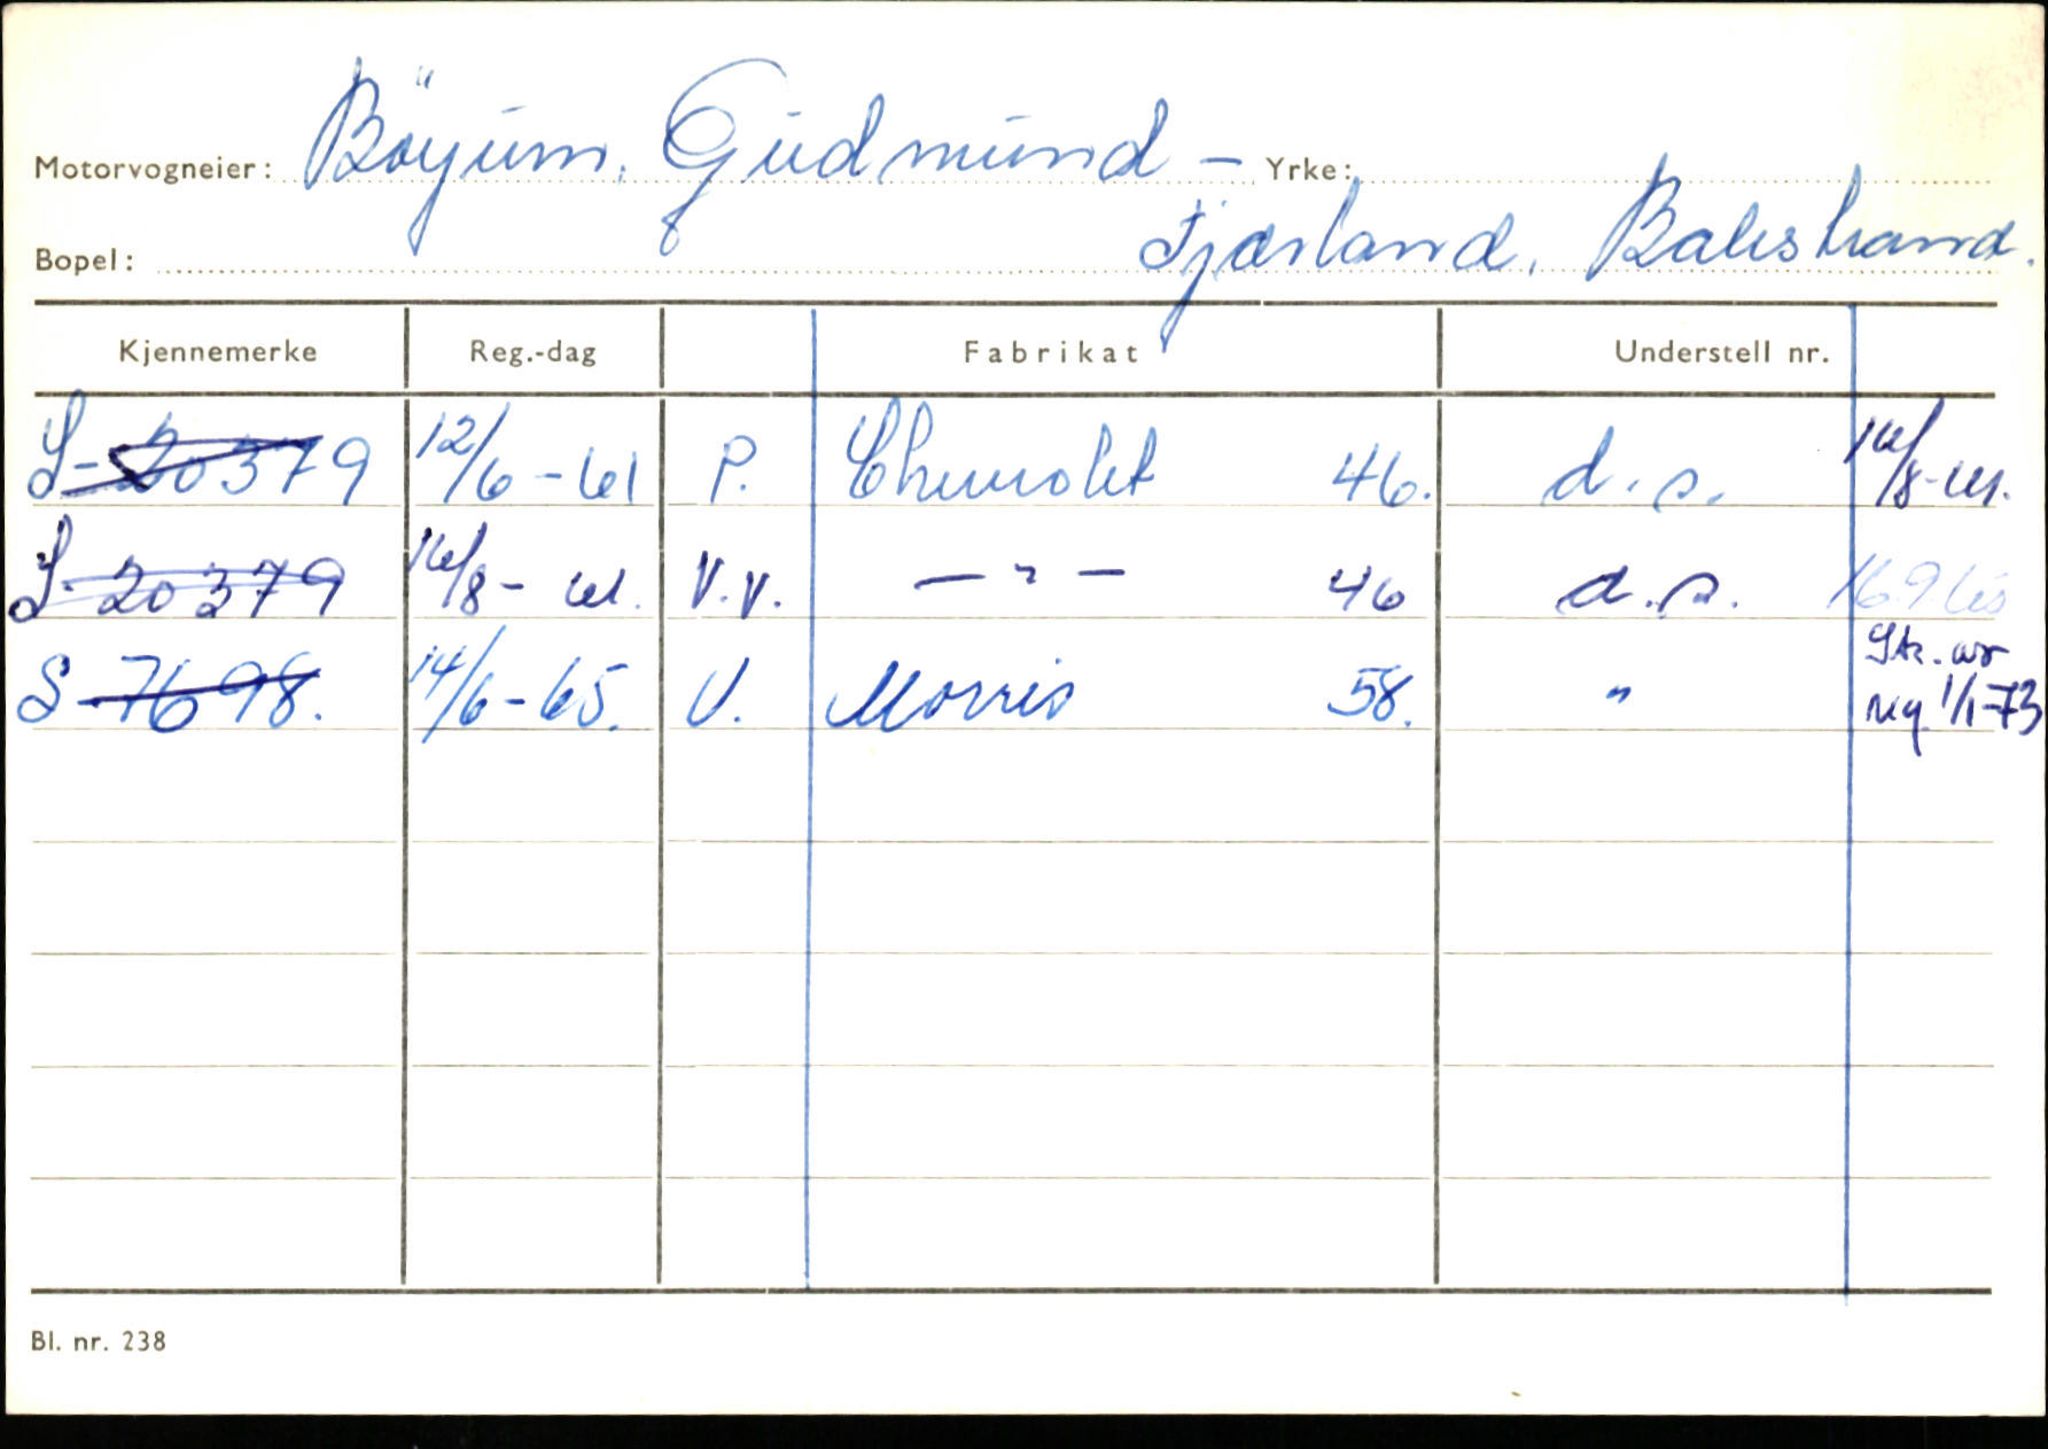 Motorvogneier: Böyum, Gudmund — Yrke:
Bopel: Fjærland, Balestrand.
Kjennemerke Reg.-dag Fabrikat Understell nr.
S-20379 12/6-61 P. Chevrolet 46. d.s. 16/8-61.
S-20379 16/8-61. V.V. —"— 46 d.s. 16965
S-7698. 14/6-65. V. Morris 58. " Str. av
reg. 1/1-73
Bl. nr. 238